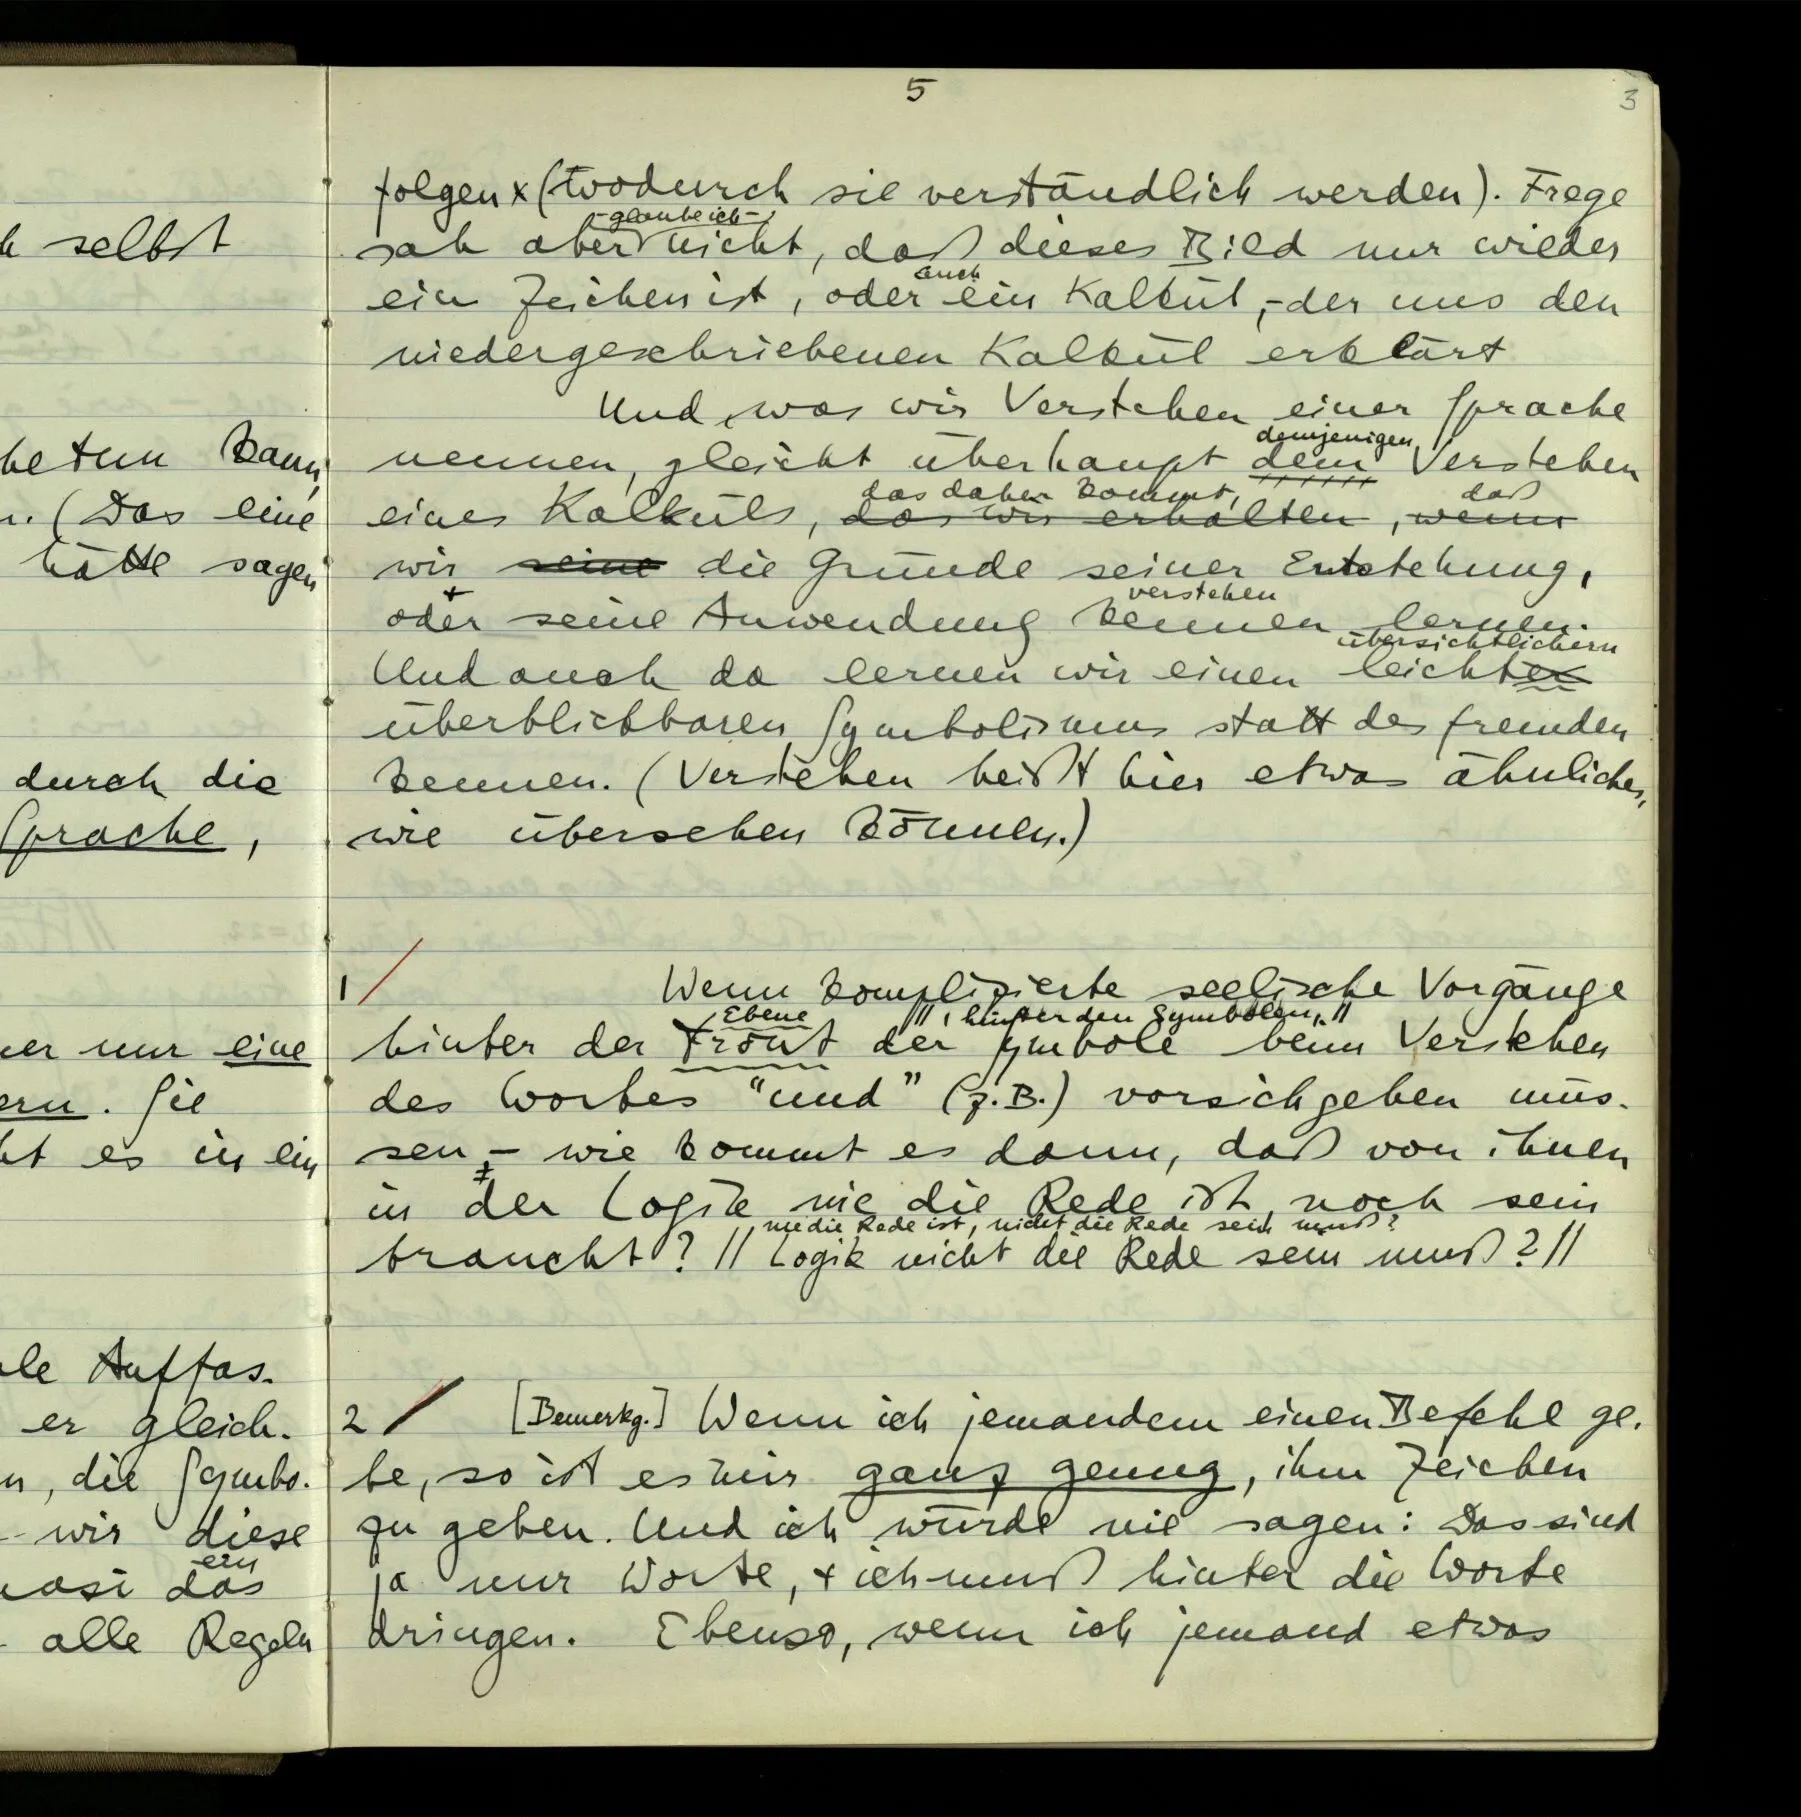 5
3
folgen x (wodurch sie verständlich werden). Frege
– glaube ich –
sah aber nicht, daß dieses Bild nur wieder
auch
ein Zeichen ist, oder ein Kalkül, – der uns den
niedergeschriebenen Kalkül erklärt
Und, was wir Verstehen einer Sprache
demjenigen
nennen, gleicht überhaupt dem Verstehen
das daher kommt, daß
eines Kalküls, das wir erhalten, wenn
wir seine die Gründe seiner Entstehung,
+ verstehen
oder seine Anwendung kennen lernen.
übersichtlichern
Und auch da lernen wir einen leichter
überblickbaren Symbolismus statt des fremden
kennen. (Verstehen heißt hier etwas ähnliches,
wie übersehen können.)
1 / Wenn komplizierte seelische Vorgänge
Ebene // , hinter den Symbolen, //
hinter der Front der Symbole beim Verstehen
des Wortes "und" (z.B.) vorsichgehen müs-
sen – wie kommt es dann, daß von ihnen
in der Logik nie die Rede ist, noch sein
nie die Rede ist, nicht die Rede sein muß?
braucht? // Logik nicht die Rede sein muß? //
2 / [Bemerkg.] Wenn ich jemandem einen Befehl ge-
be, so ist es mir ganz genug, ihm Zeichen
zu geben. Und ich würde nie sagen: Das sind
ja nur Worte, + ich muß hinter die Worte
dringen. Ebenso, wenn ich jemand etwas
selbst
tun kann,
(Das eine
hätte sagen
durch die
Sprache,
er nur eine
ern. Sie
es in ein
Auffas-
er gleich-
, die Symbo-
– wir diese
ein
das
alle Regeln